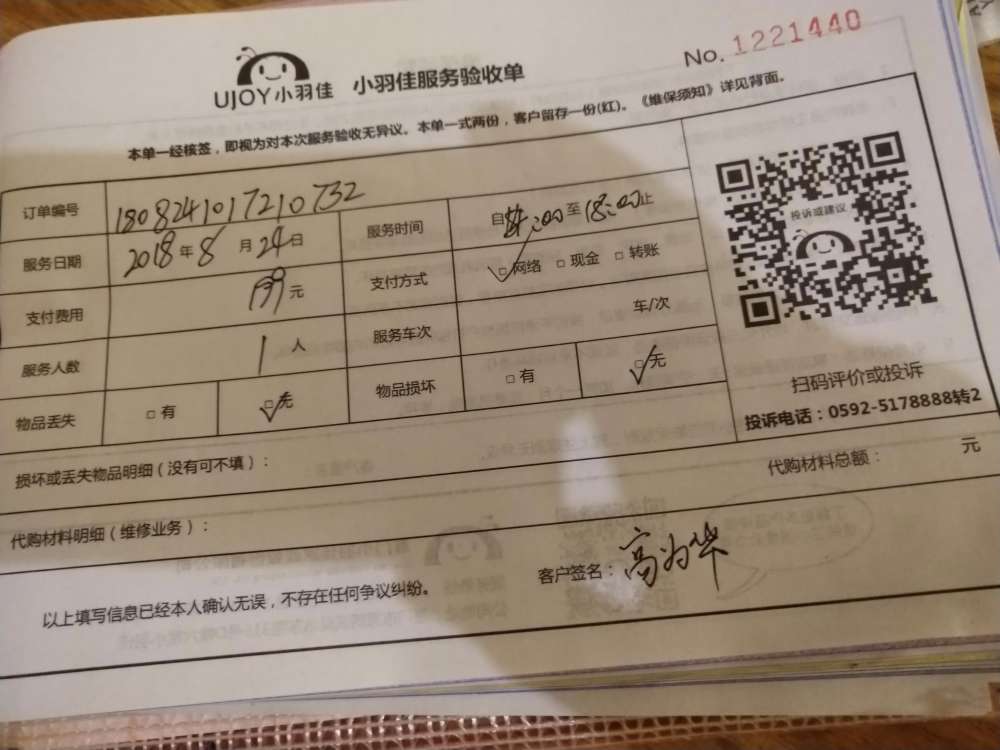 UJOY小羽佳 小羽佳服务验收单 No. 1221440
本单一经核签，即视为对本次服务验收无异议。本单一式两份，客户留存一份(红)。《维保须知》详见背面。
订单编号 1808241017210732
服务日期 2018年8月24日 服务时间 自 :00至18:00止
支付费用 199元 支付方式 ☑网络 □现金 □转账
服务人数 1人 服务车次 车/次
物品丢失 □有 ☑无 物品损坏 □有 ☑无
投诉或建议
扫码评价或投诉
投诉电话：0592-5178888转2
损坏或丢失物品明细（没有可不填）：
代购材料明细（维修业务）： 代购材料总额： 元
以上填写信息已经本人确认无误，不存在任何争议纠纷。 客户签名：高为华